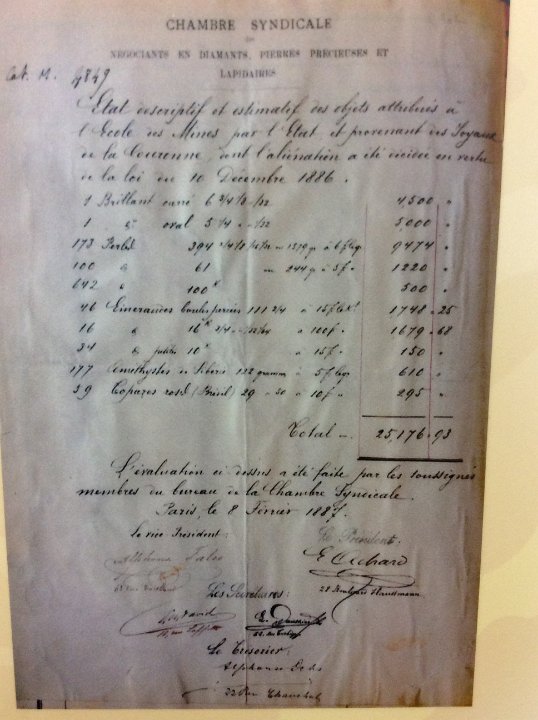 CHAMBRE SYNDICALE
DES
NÉGOCIANTS EN DIAMANTS, PIERRES PRÉCIEUSES ET
LAPIDAIRES
Cat. M. 4849
Etat descriptif et estimatif des objets attribués à
l'Ecole des Mines par l'Etat et provenant des Joyaux
de la Couronne, dont l'aliénation a été décidée en vertu
de la loi du 10 Décembre 1886.
1 Brillant carré 6 3/4 1/8 1/32 4,500 "
1 " oval 5 1/4 1/32 5,000 "
173 Perles 394 1579 gr à 6 f 9474 "
100 " 61 244 gr à 5 f 1220 "
642 " 100 K 500 "
46 Emeraudes 111 2/4 à 15 f 1748 " 25
16 " 16 K 2/4 à 100 f 1679 " 68
34 " petites 10 K à 15 f 150 "
177 Améthystes de Sibérie 122 grammes à 5 f le gr 610 "
59 Topazes roses (Brésil) 29 " 50 à 10 f 295 "
Total 25,176 " 93
L'évaluation ci dessus a été faite par les soussignés
membres du bureau de la Chambre Syndicale.
Paris, le 8 Février 1887.
Le vice Président : Le Président.
28 Boulevard Haussmann
Les Secrétaires :
Le Trésorier
Alphonse
22 Rue